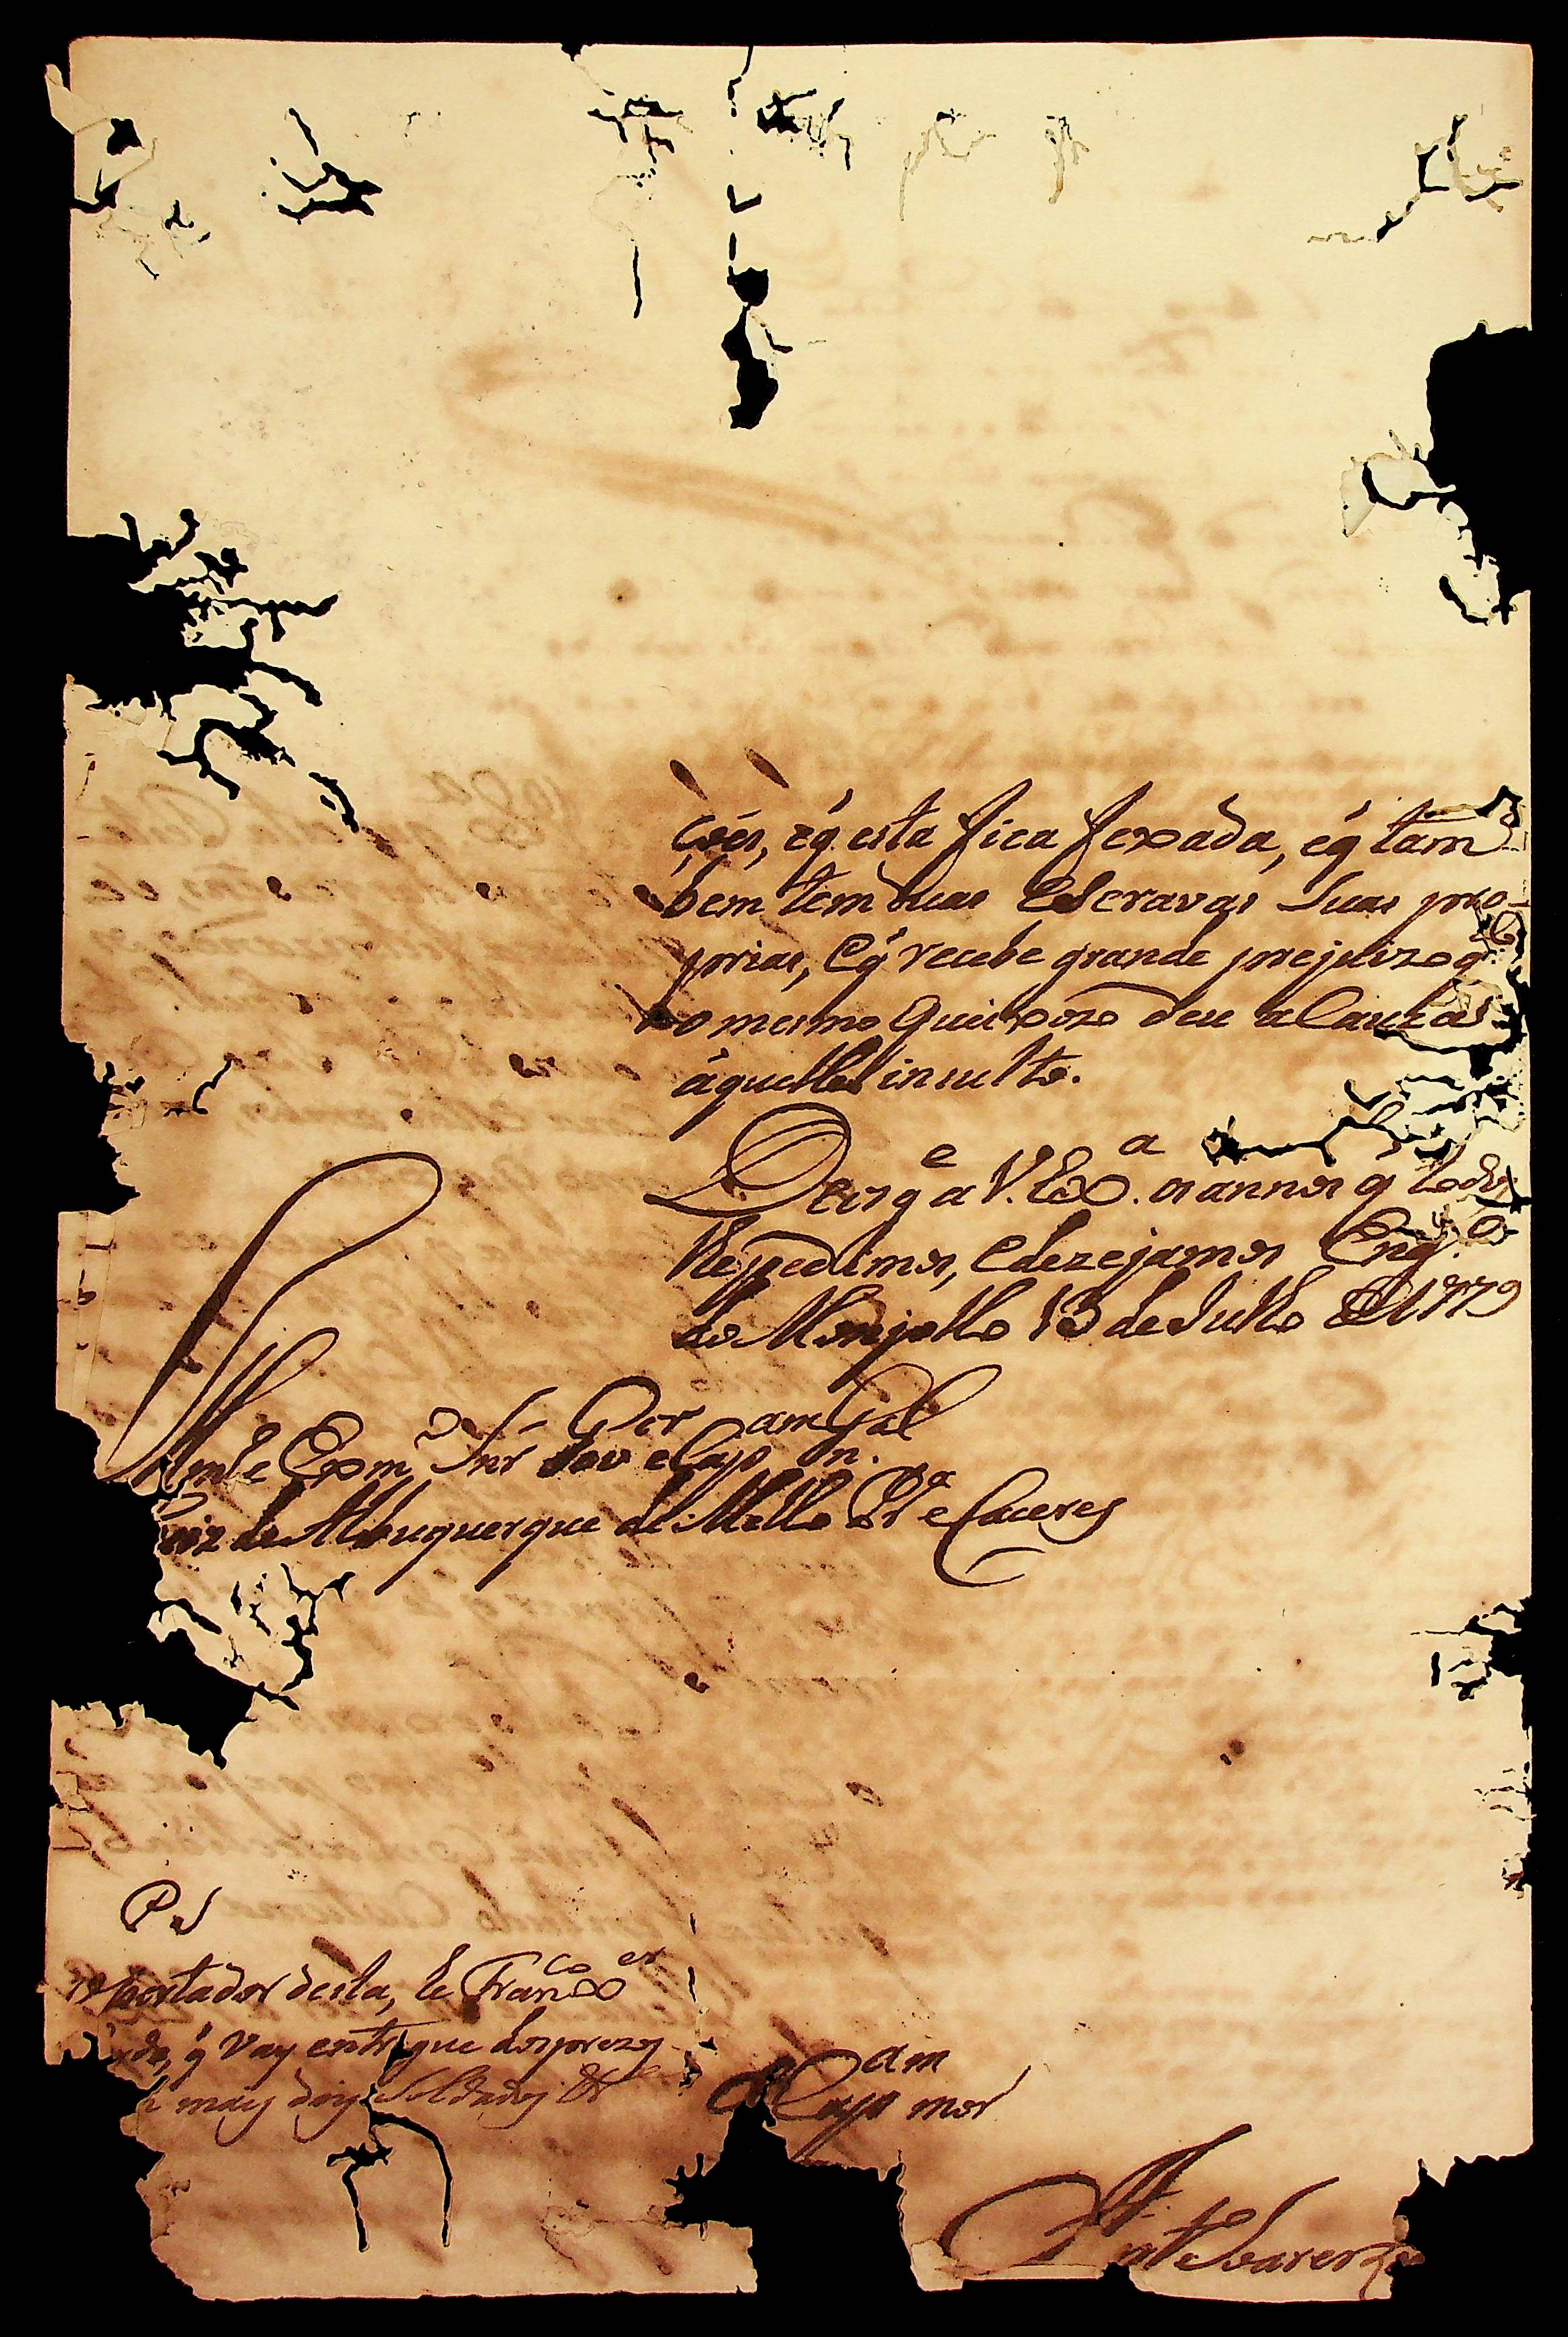 çoẽs, eq̃ esta fica fexada, eq̃ tam
bem tem duas Escravas Suas pro-
prias, Eq̃ recebe grande prejuizo q̃
o mesmo Queixozo deu a Cauza
áquelles insulto.
Deos g.e a V. Ex.a os annos q̃ todos
lhe pedimos, e dezejamos Eng.o
do Monjollo 13 de Julho de 1779
Exm.o Snr Gov.or e Cap.am G.al
Luiz de Albuquerque de Mello Pr.a e Caceres
P. S
portador desta, he Fran.co X.er
q̃ vay entregue dos prezos
mais dois Soldados &
Cap.am mor
Ant.o Soares